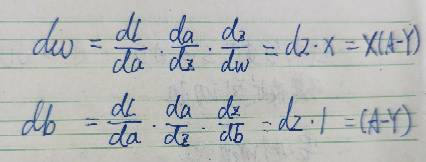 dw = dL/da · da/dz · dz/dw = dz·x = X(A-Y)
db = dL/da · da/dz · dz/db = dz·1 = (A-Y)